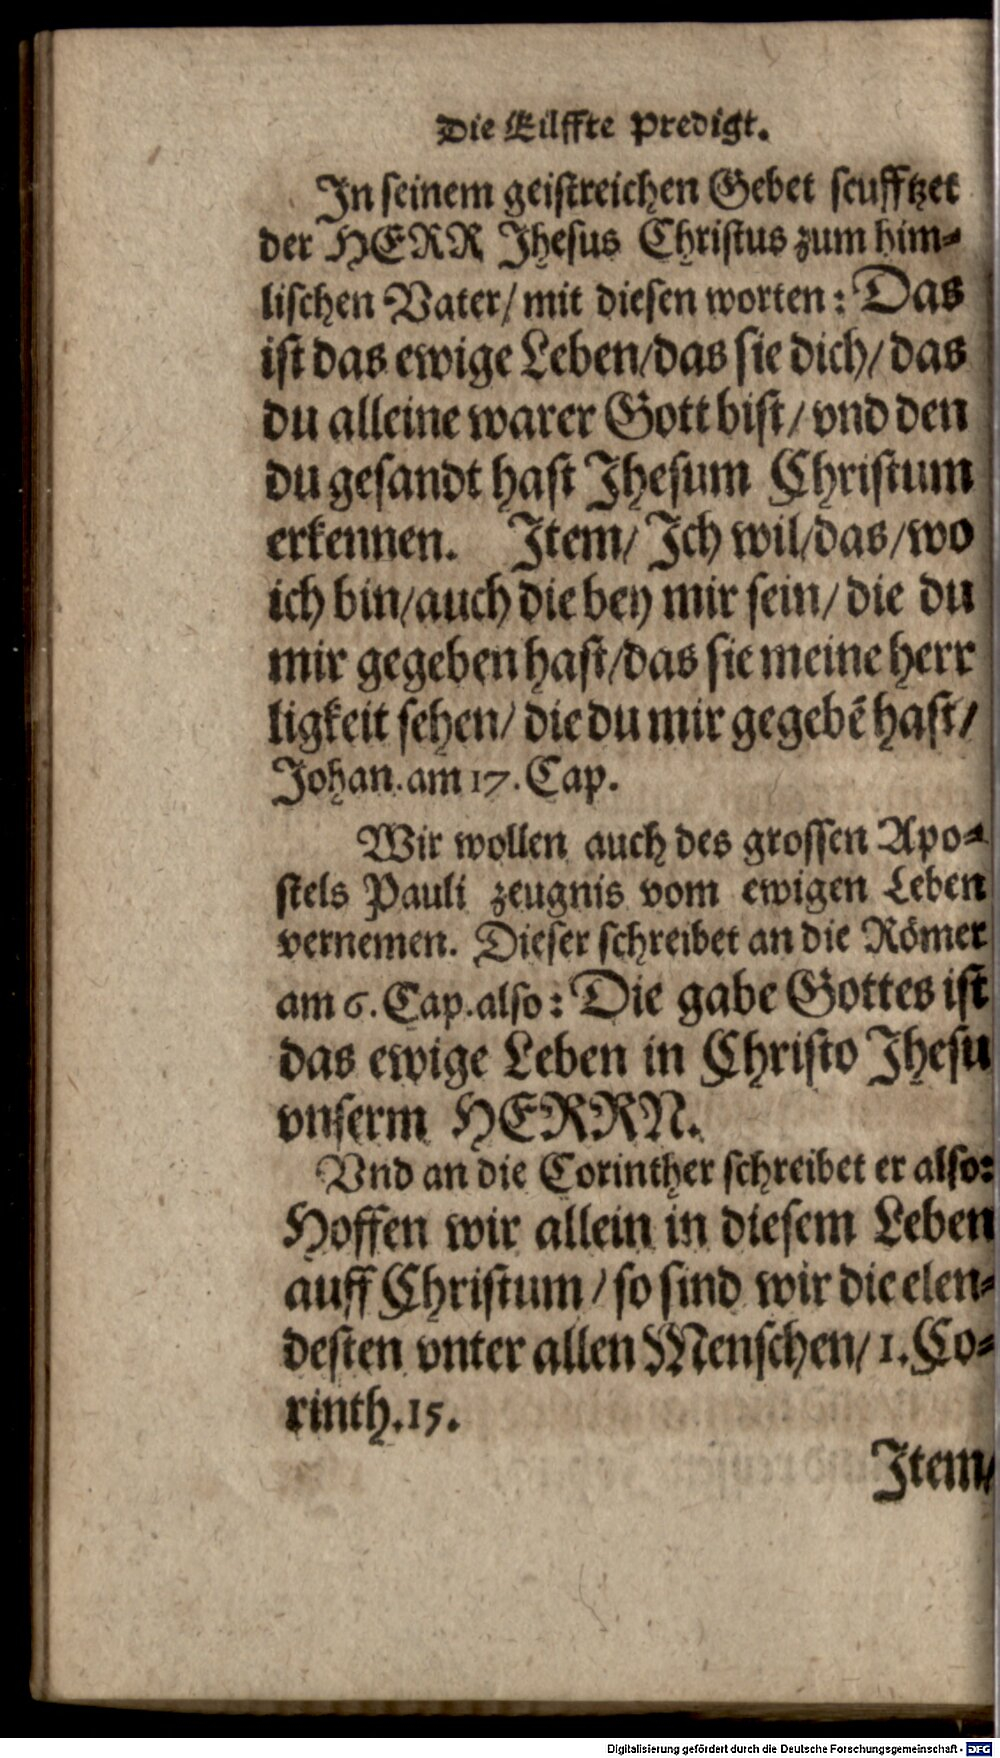 Die Eilffte Predigt.
In seinem geistreichen Gebet seufftzet
der HERR Jhesus Christus zum him-
lischen Vater/ mit diesen worten: Das
ist das ewige Leben/das sie dich/ das
du alleine warer Gott bist/ vnd den
du gesandt hast Jhesum Christum
erkennen. Item/ Ich wil/das/wo
ich bin/auch die bey mir sein/ die du
mir gegeben hast/das sie meine herr
ligkeit sehen/ die du mir gegebē hast/
Johan. am 17. Cap.
Wir wollen auch des grossen Apo-
stels Pauli zeugnis vom ewigen Leben
vernemen. Dieser schreibet an die Römer
am 6. Cap. also: Die gabe Gottes ist
das ewige Leben in Christo Jhesu
vnserm HERRN.
Vnd an die Corinther schreibet er also:
Hoffen wir allein in diesem Leben
auff Christum/ so sind wir die elen-
desten vnter allen Menschen/ 1. Co-
rinth. 15.
Item/
Digitalisierung gefördert durch die Deutsche Forschungsgemeinschaft - DFG